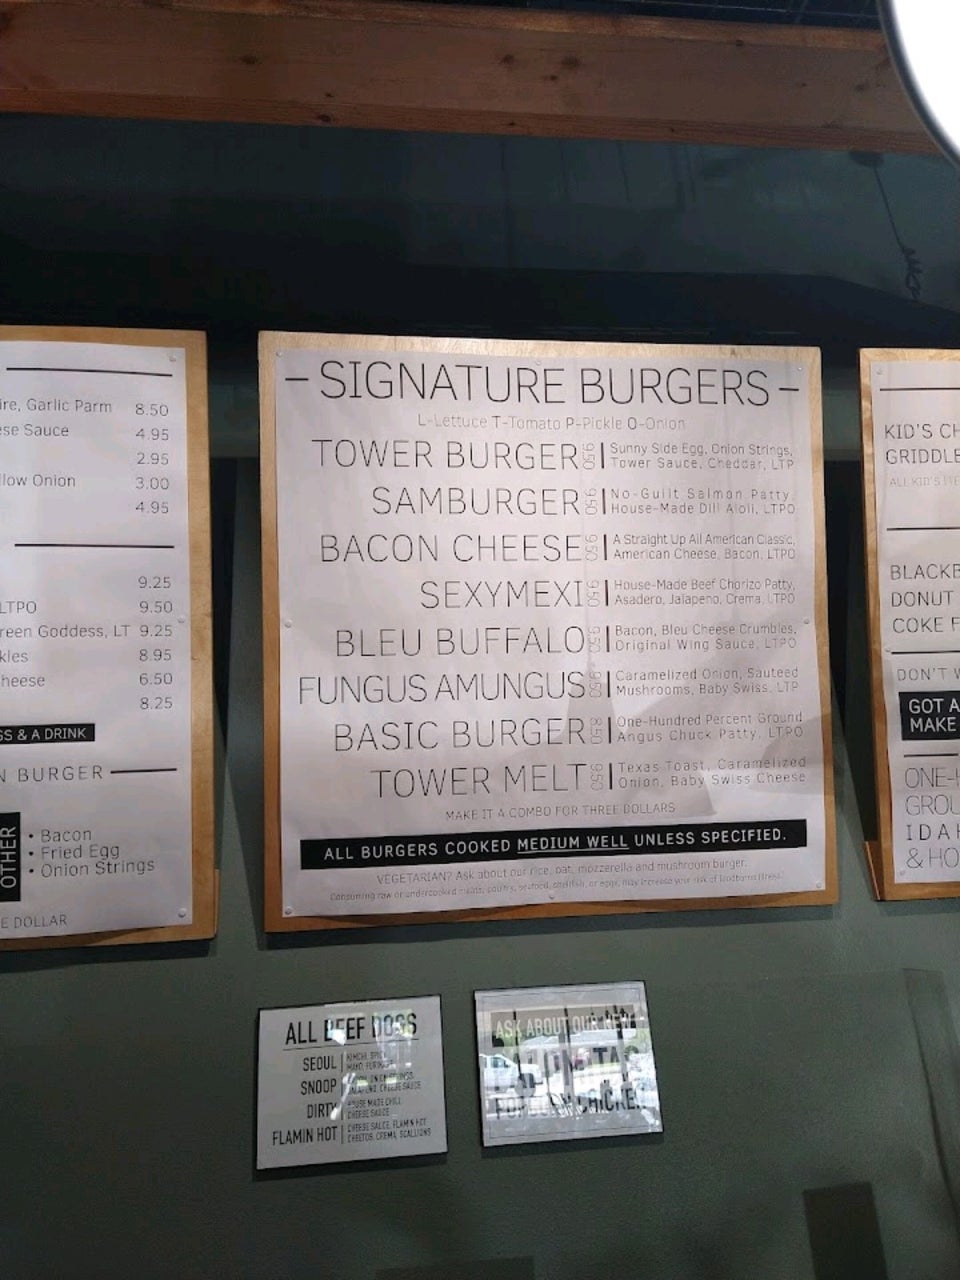 ire, Garlic Parm 8.50
ese Sauce 4.95
2.95
llow Onion 3.00
4.95
9.25
LTPO 9.50
reen Goddess, LT 9.25
kles 8.95
heese 6.50
8.25
GS & A DRINK
N BURGER
OTHER
• Bacon
• Fried Egg
• Onion Strings
E DOLLAR
- SIGNATURE BURGERS -
L-Lettuce T-Tomato P-Pickle O-Onion
TOWER BURGER 950 | Sunny Side Egg, Onion Strings,
Tower Sauce, Cheddar, LTP
SAMBURGER 950 | No-Guilt Salmon Patty,
House-Made Dill Aioli, LTPO
BACON CHEESE 950 | A Straight Up All American Classic,
American Cheese, Bacon, LTPO
SEXYMEXI 950 | House-Made Beef Chorizo Patty,
Asadero, Jalapeno, Crema, LTPO
BLEU BUFFALO 950 | Bacon, Bleu Cheese Crumbles,
Original Wing Sauce, LTPO
FUNGUS AMUNGUS | Caramelized Onion, Sauteed
Mushrooms, Baby Swiss, LTP
BASIC BURGER 850 | One-Hundred Percent Ground
Angus Chuck Patty, LTPO
TOWER MELT 950 | Texas Toast, Caramelized
Onion, Baby Swiss Cheese
MAKE IT A COMBO FOR THREE DOLLARS
ALL BURGERS COOKED MEDIUM WELL UNLESS SPECIFIED.
VEGETARIAN? Ask about our rice, oat, mozzerella and mushroom burger.
Consuming raw or undercooked meats, poultry, seafood, shellfish, or eggs, may increase your risk of foodborne illness.
KID'S CH
GRIDDLE
ALL KID'S
BLACKB
DONUT
COKE F
DON'T W
GOT A
MAKE
ONE-H
GROU
IDAH
& HO
ALL BEEF DOGS
SEOUL | KIMCHI, SPICY
MAYO,
SNOOP |
JALAPENO, CHEESE SAUCE
DIRTY | HOUSE MADE CHILI,
CHEESE SAUCE
FLAMIN HOT | CHEESE SAUCE, FLAMIN HOT
CHEETOS, CREMA, SCALLIONS
ASK ABOUT OUR NEW
CHICKEN